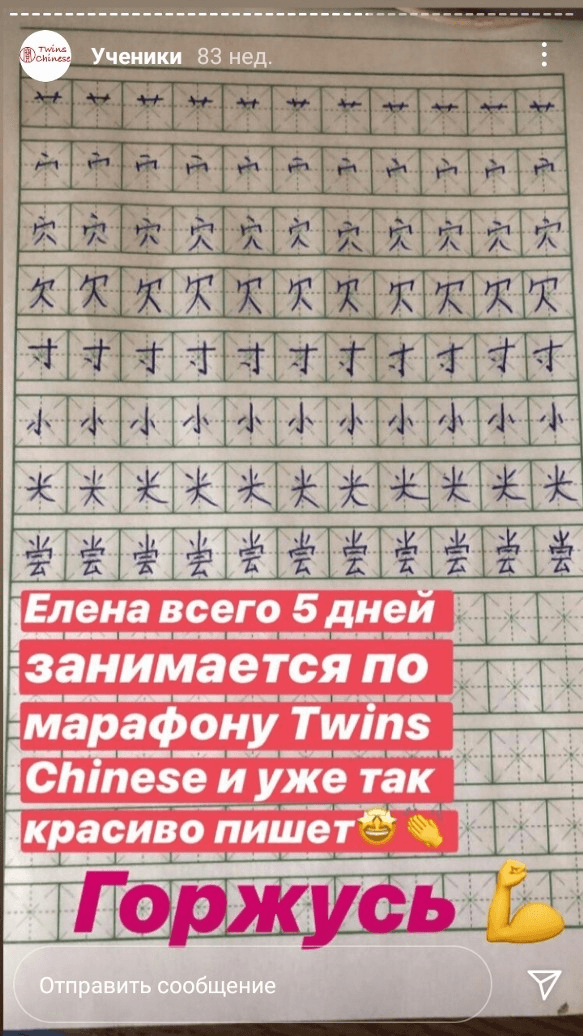 Twins
Chinese
Ученики 83 нед.
艹 艹 艹 艹 艹 艹 艹 艹 艹 艹 艹
宀 宀 宀 宀 宀 宀 宀 宀 宀 宀 宀
穴 穴 穴 穴 穴 穴 穴 穴 穴 穴 穴
欠 欠 欠 欠 欠 欠 欠 欠 欠 欠 欠
寸 寸 寸 寸 寸 寸 寸 寸 寸 寸 寸
小 小 小 小 小 小 小 小 小 小 小
尝 尝 尝 尝 尝 尝 尝 尝 尝 尝 尝
Елена всего 5 дней
занимается по
марафону Twins
Chinese и уже так
красиво пишет🤩👏
Горжусь 💪
Отправить сообщение